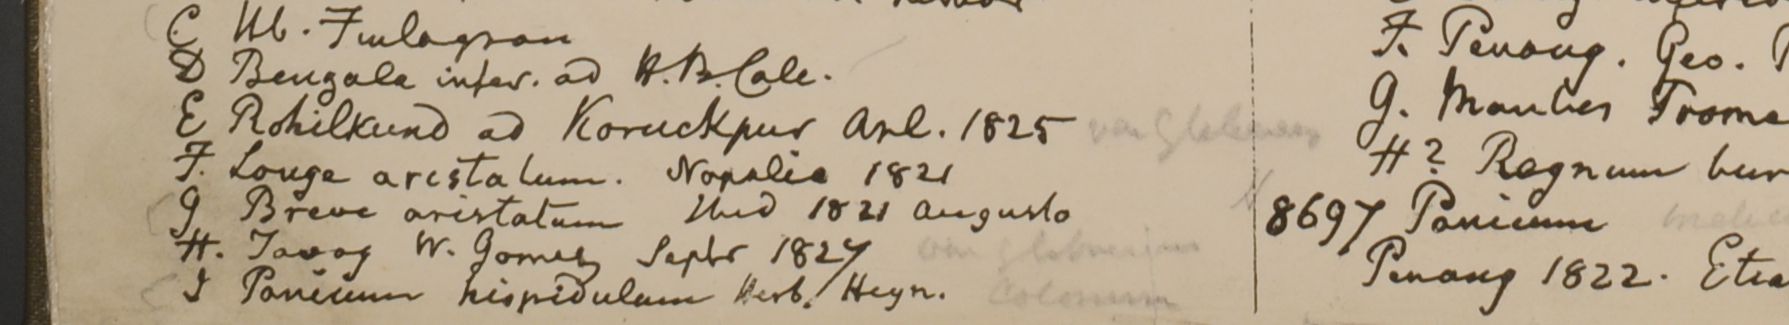 C Hb. Finlayson
D Bengala infer. ad H.B. Calc.
E Rohilkund ad Koruckpur Anl. 1825
F. Longe aristatum. Napalia 1821
G Breve aristatum Ibid 1821 Augusto
H. Tavoy W. Gomez Septr 1827
I Panicum hispidulum Herb. Heyn. Colonum
F. Penang. Geo.
G. Montes
H? Regnum bur
8697 Panicum
Penang 1822. Etia